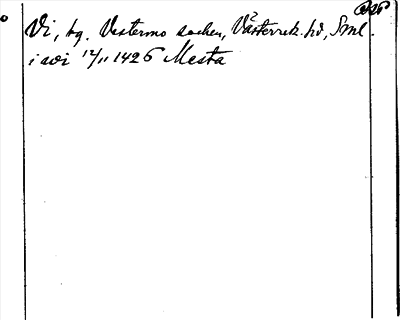 Vi, by. Vestermo socken, Västerrek. hd, Sml.
i wi 12/11 1426 Mesta